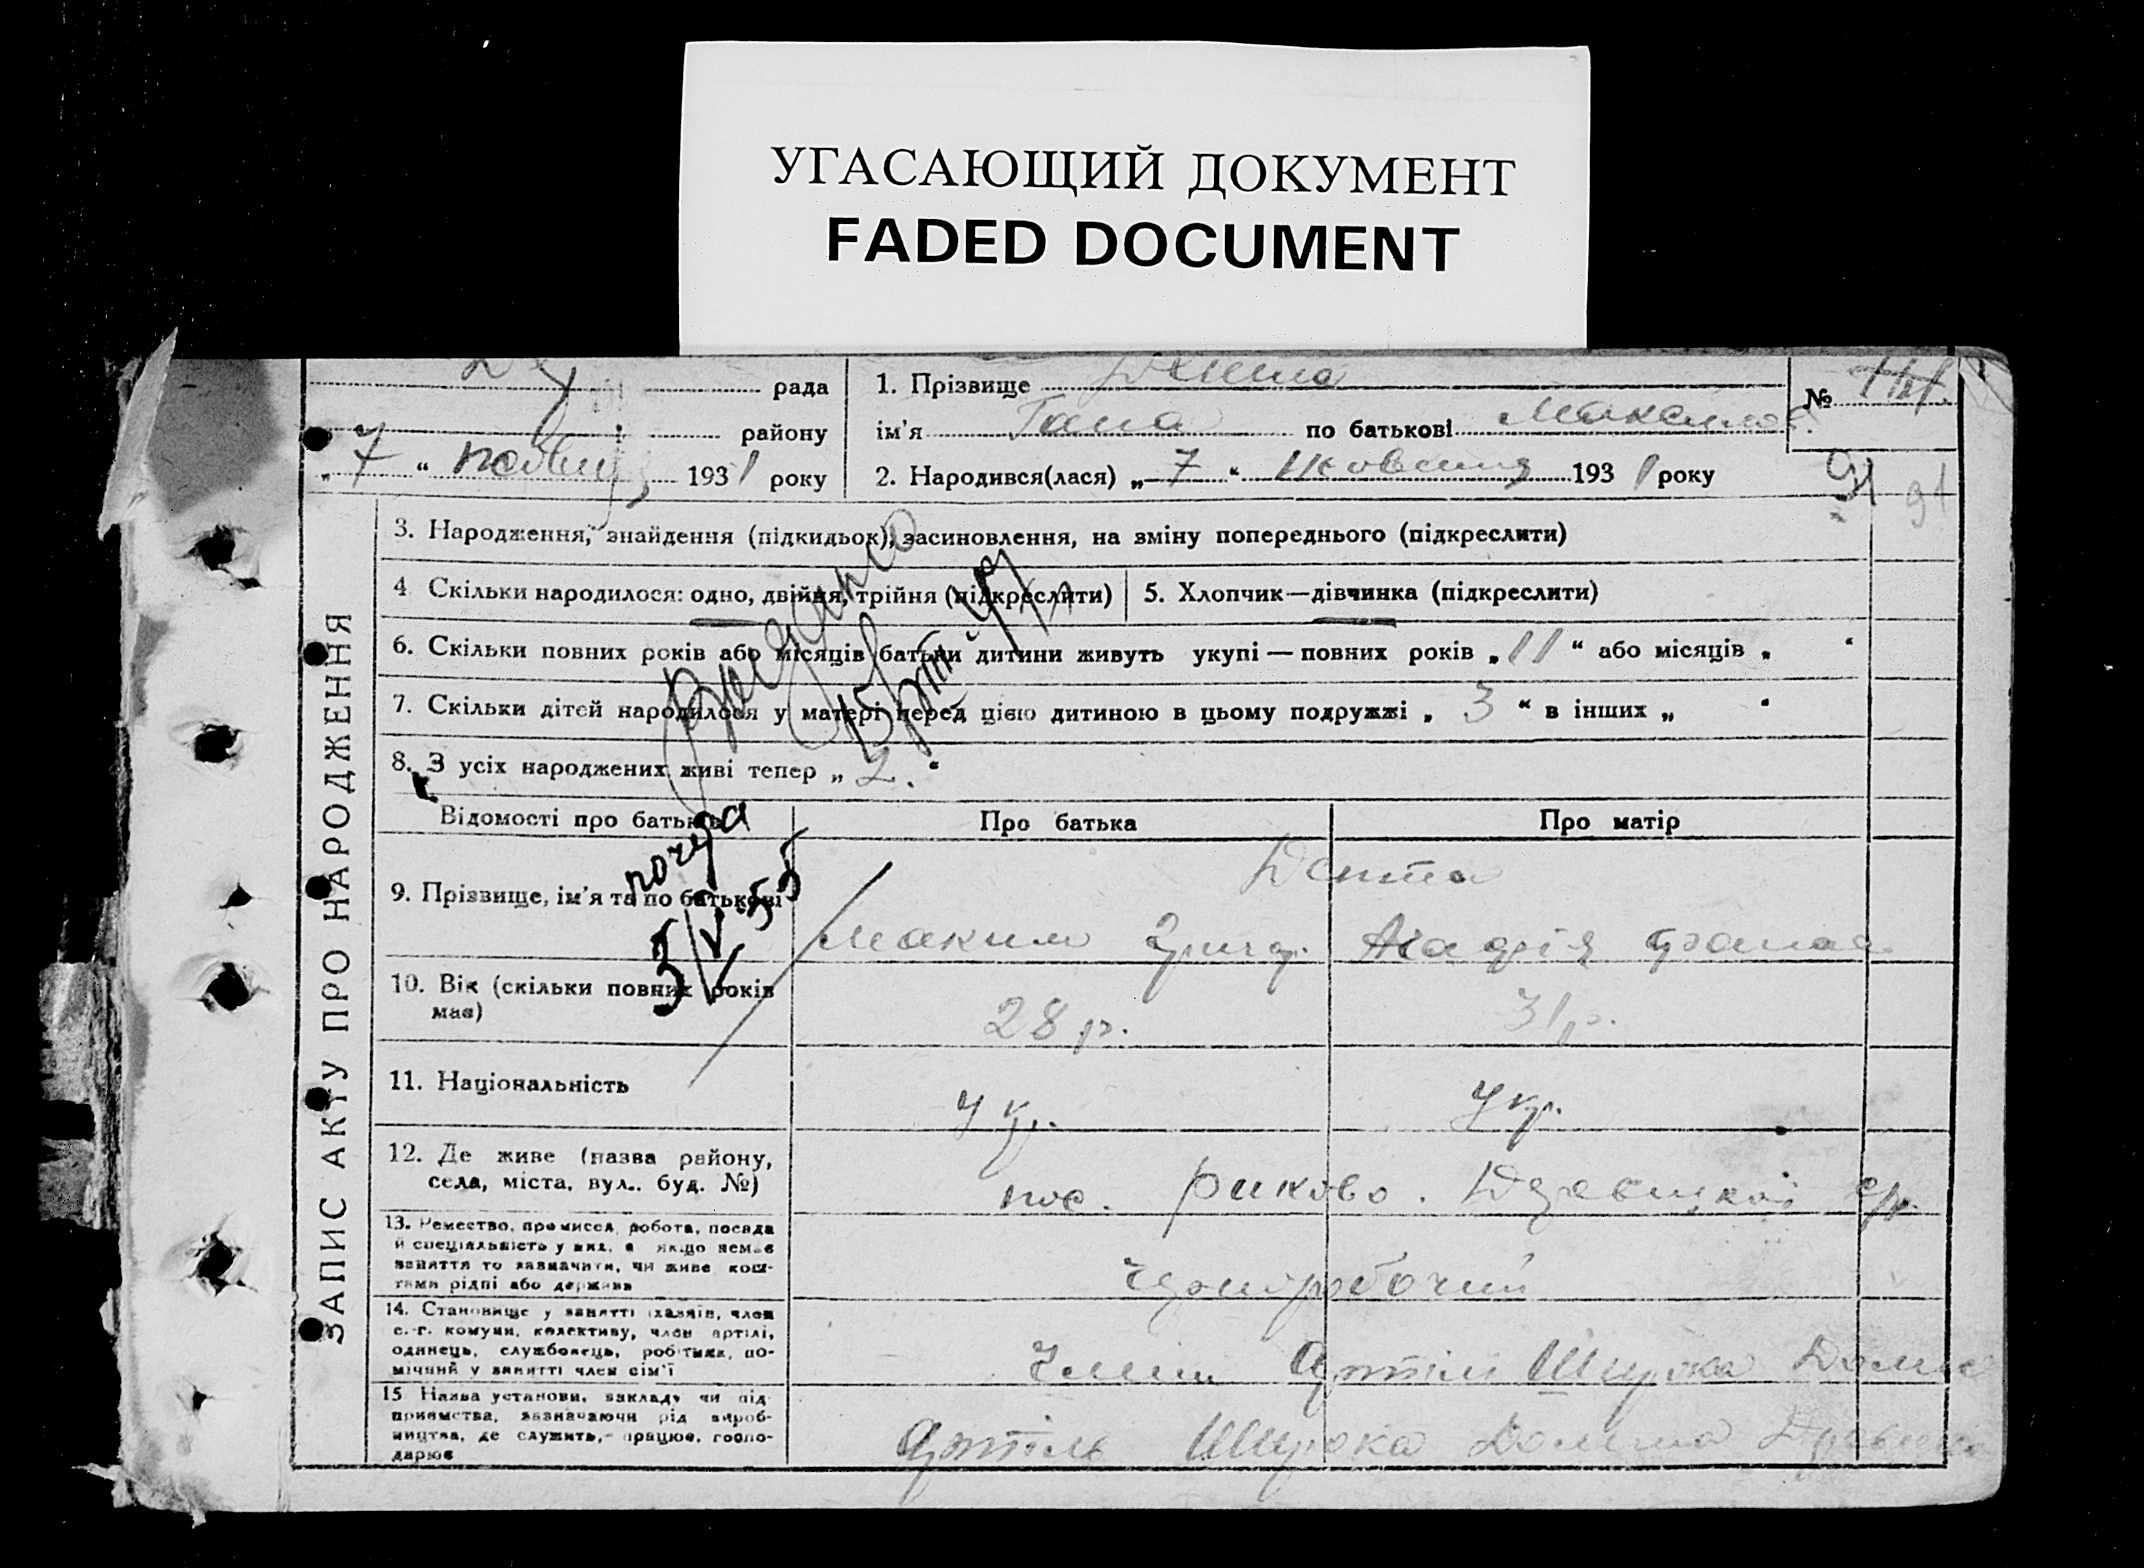 УГАСАЮЩИЙ ДОКУМЕНТ
FADED DOCUMENT
рада
району
„ 7 “ 1931 року
1. Прізвище
ім'я Гана по батькові Максимов.
2. Народився(лася) „ 7 “ 1931 року
№
91 91
ЗАПИС АКТУ ПРО НАРОДЖЕННЯ
3. Народження, знайдення (підкидьок), засиновлення, на зміну попереднього (підкреслити)
4 Скільки народилося: одно, двійня, трійня (підкреслити)
5. Хлопчик—дівчинка (підкреслити)
6. Скільки повних років або місяців батьки дитини живуть укупі — повних років „ 11 “ або місяців „ “
7. Скільки дітей народилося у матері перед цією дитиною в цьому подружжі „ 3 “ в інших „ “
8. З усіх народжених живі тепер „ 2. “
Відомості про батьків
Про батька
Про матір
9. Прізвище, ім'я та по батькові
Максим Григ.
5/V-55
10. Вік (скільки повних років має)
28 р.
31 р.
11. Національність
Укр.
Укр.
12. Де живе (назва району,
села, міста, вул.. буд. №)
пос. Риково.
13. Ремество, промисел, робота, посада
й спеціяльність у них, а якщо немає
заняття то зазначити, чи живе кош-
тами рідні або держави
чорноробочий
14. Становище у занятті (хазяїн, член
с.-г. комуни, колективу, член артілі,
одинець, службовець, робітник, по-
мічний у занятті член сім'ї
Член Артілі Широка Долин
15 Назва установи, закладу чи під-
приємства, зазначаючи рід вироб-
ництва, де служить,- працює, госпо-
дарює
Артіль Широка Долина